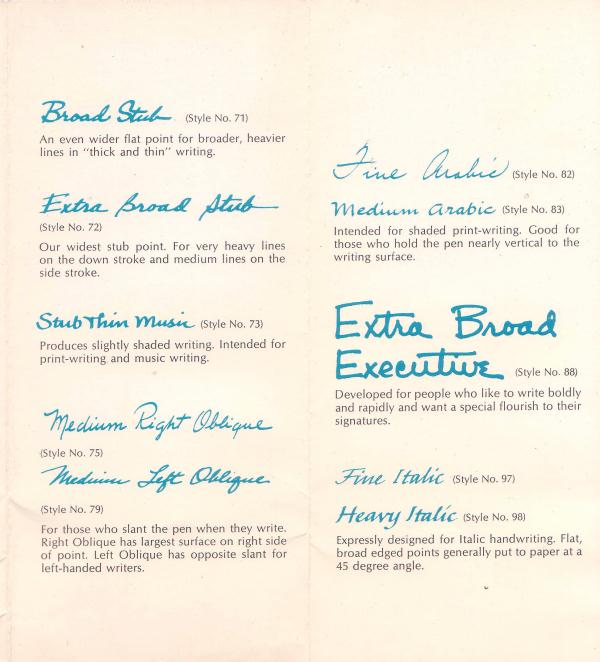 Broad Stub (Style No. 71)
An even wider flat point for broader, heavier
lines in "thick and thin" writing.
Extra Broad Stub
(Style No. 72)
Our widest stub point. For very heavy lines
on the down stroke and medium lines on the
side stroke.
Stub Thin Music (Style No. 73)
Produces slightly shaded writing. Intended for
print-writing and music writing.
Medium Right Oblique
(Style No. 75)
Medium Left Oblique
(Style No. 79)
For those who slant the pen when they write.
Right Oblique has largest surface on right side
of point. Left Oblique has opposite slant for
left-handed writers.
Fine Arabic (Style No. 82)
Medium Arabic (Style No. 83)
Intended for shaded print-writing. Good for
those who hold the pen nearly vertical to the
writing surface.
Extra Broad
Executive (Style No. 88)
Developed for people who like to write boldly
and rapidly and want a special flourish to their
signatures.
Fine Italic (Style No. 97)
Heavy Italic (Style No. 98)
Expressly designed for Italic handwriting. Flat,
broad edged points generally put to paper at a
45 degree angle.